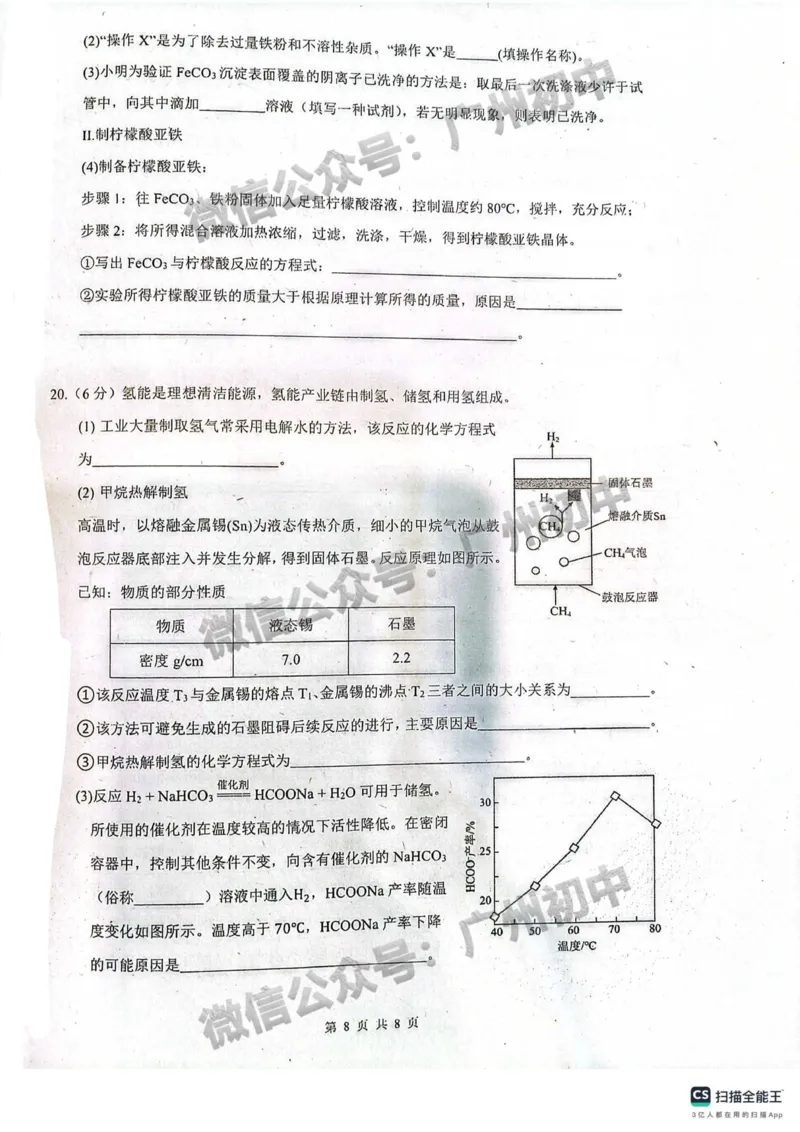 (2)“操作 X”是为了除去过量铁粉和不溶性杂质。“操作 X”是______(填操作名称)。
(3)小明为验证 FeCO₃ 沉淀表面覆盖的阴离子已洗净的方法是：取最后一次洗涤液少许于试
管中，向其中滴加________溶液（填写一种试剂），若无明显现象，则表明已洗净。
II.制柠檬酸亚铁
(4)制备柠檬酸亚铁：
步骤 1：往 FeCO₃、铁粉固体加入足量柠檬酸溶液，控制温度约 80℃，搅拌，充分反应；
步骤 2：将所得混合溶液加热浓缩，过滤，洗涤，干燥，得到柠檬酸亚铁晶体。
①写出 FeCO₃ 与柠檬酸反应的方程式：______________________。
②实验所得柠檬酸亚铁的质量大于根据原理计算所得的质量，原因是____________
______________________。
20.（6 分）氢能是理想清洁能源，氢能产业链由制氢、储氢和用氢组成。
(1) 工业大量制取氢气常采用电解水的方法，该反应的化学方程式
为____________________。
(2) 甲烷热解制氢
高温时，以熔融金属锡(Sn)为液态传热介质，细小的甲烷气泡从鼓
泡反应器底部注入并发生分解，得到固体石墨。反应原理如图所示。
已知：物质的部分性质
物质 液态锡 石墨
密度 g/cm 7.0 2.2
H₂
固体石墨
H₂
熔融介质Sn
CH₄
CH₄气泡
鼓泡反应器
CH₄
①该反应温度 T₃ 与金属锡的熔点 T₁、金属锡的沸点 T₂ 三者之间的大小关系为________。
②该方法可避免生成的石墨阻碍后续反应的进行，主要原因是________________。
③甲烷热解制氢的化学方程式为______________________。
(3)反应 H₂ + NaHCO₃ 催化剂══ HCOONa + H₂O 可用于储氢。
所使用的催化剂在温度较高的情况下活性降低。在密闭
容器中，控制其他条件不变，向含有催化剂的 NaHCO₃
（俗称________）溶液中通入H₂，HCOONa 产率随温
度变化如图所示。温度高于 70℃，HCOONa 产率下降
的可能原因是______________________。
HCOO-产率/%
30
25
20
40 50 60 70 80
温度/℃
第 8 页 共 8 页
微信公众号：广州初中
微信公众号：广州初中
微信公众号：广州初中
CS 扫描全能王
3亿人都在用的扫描App